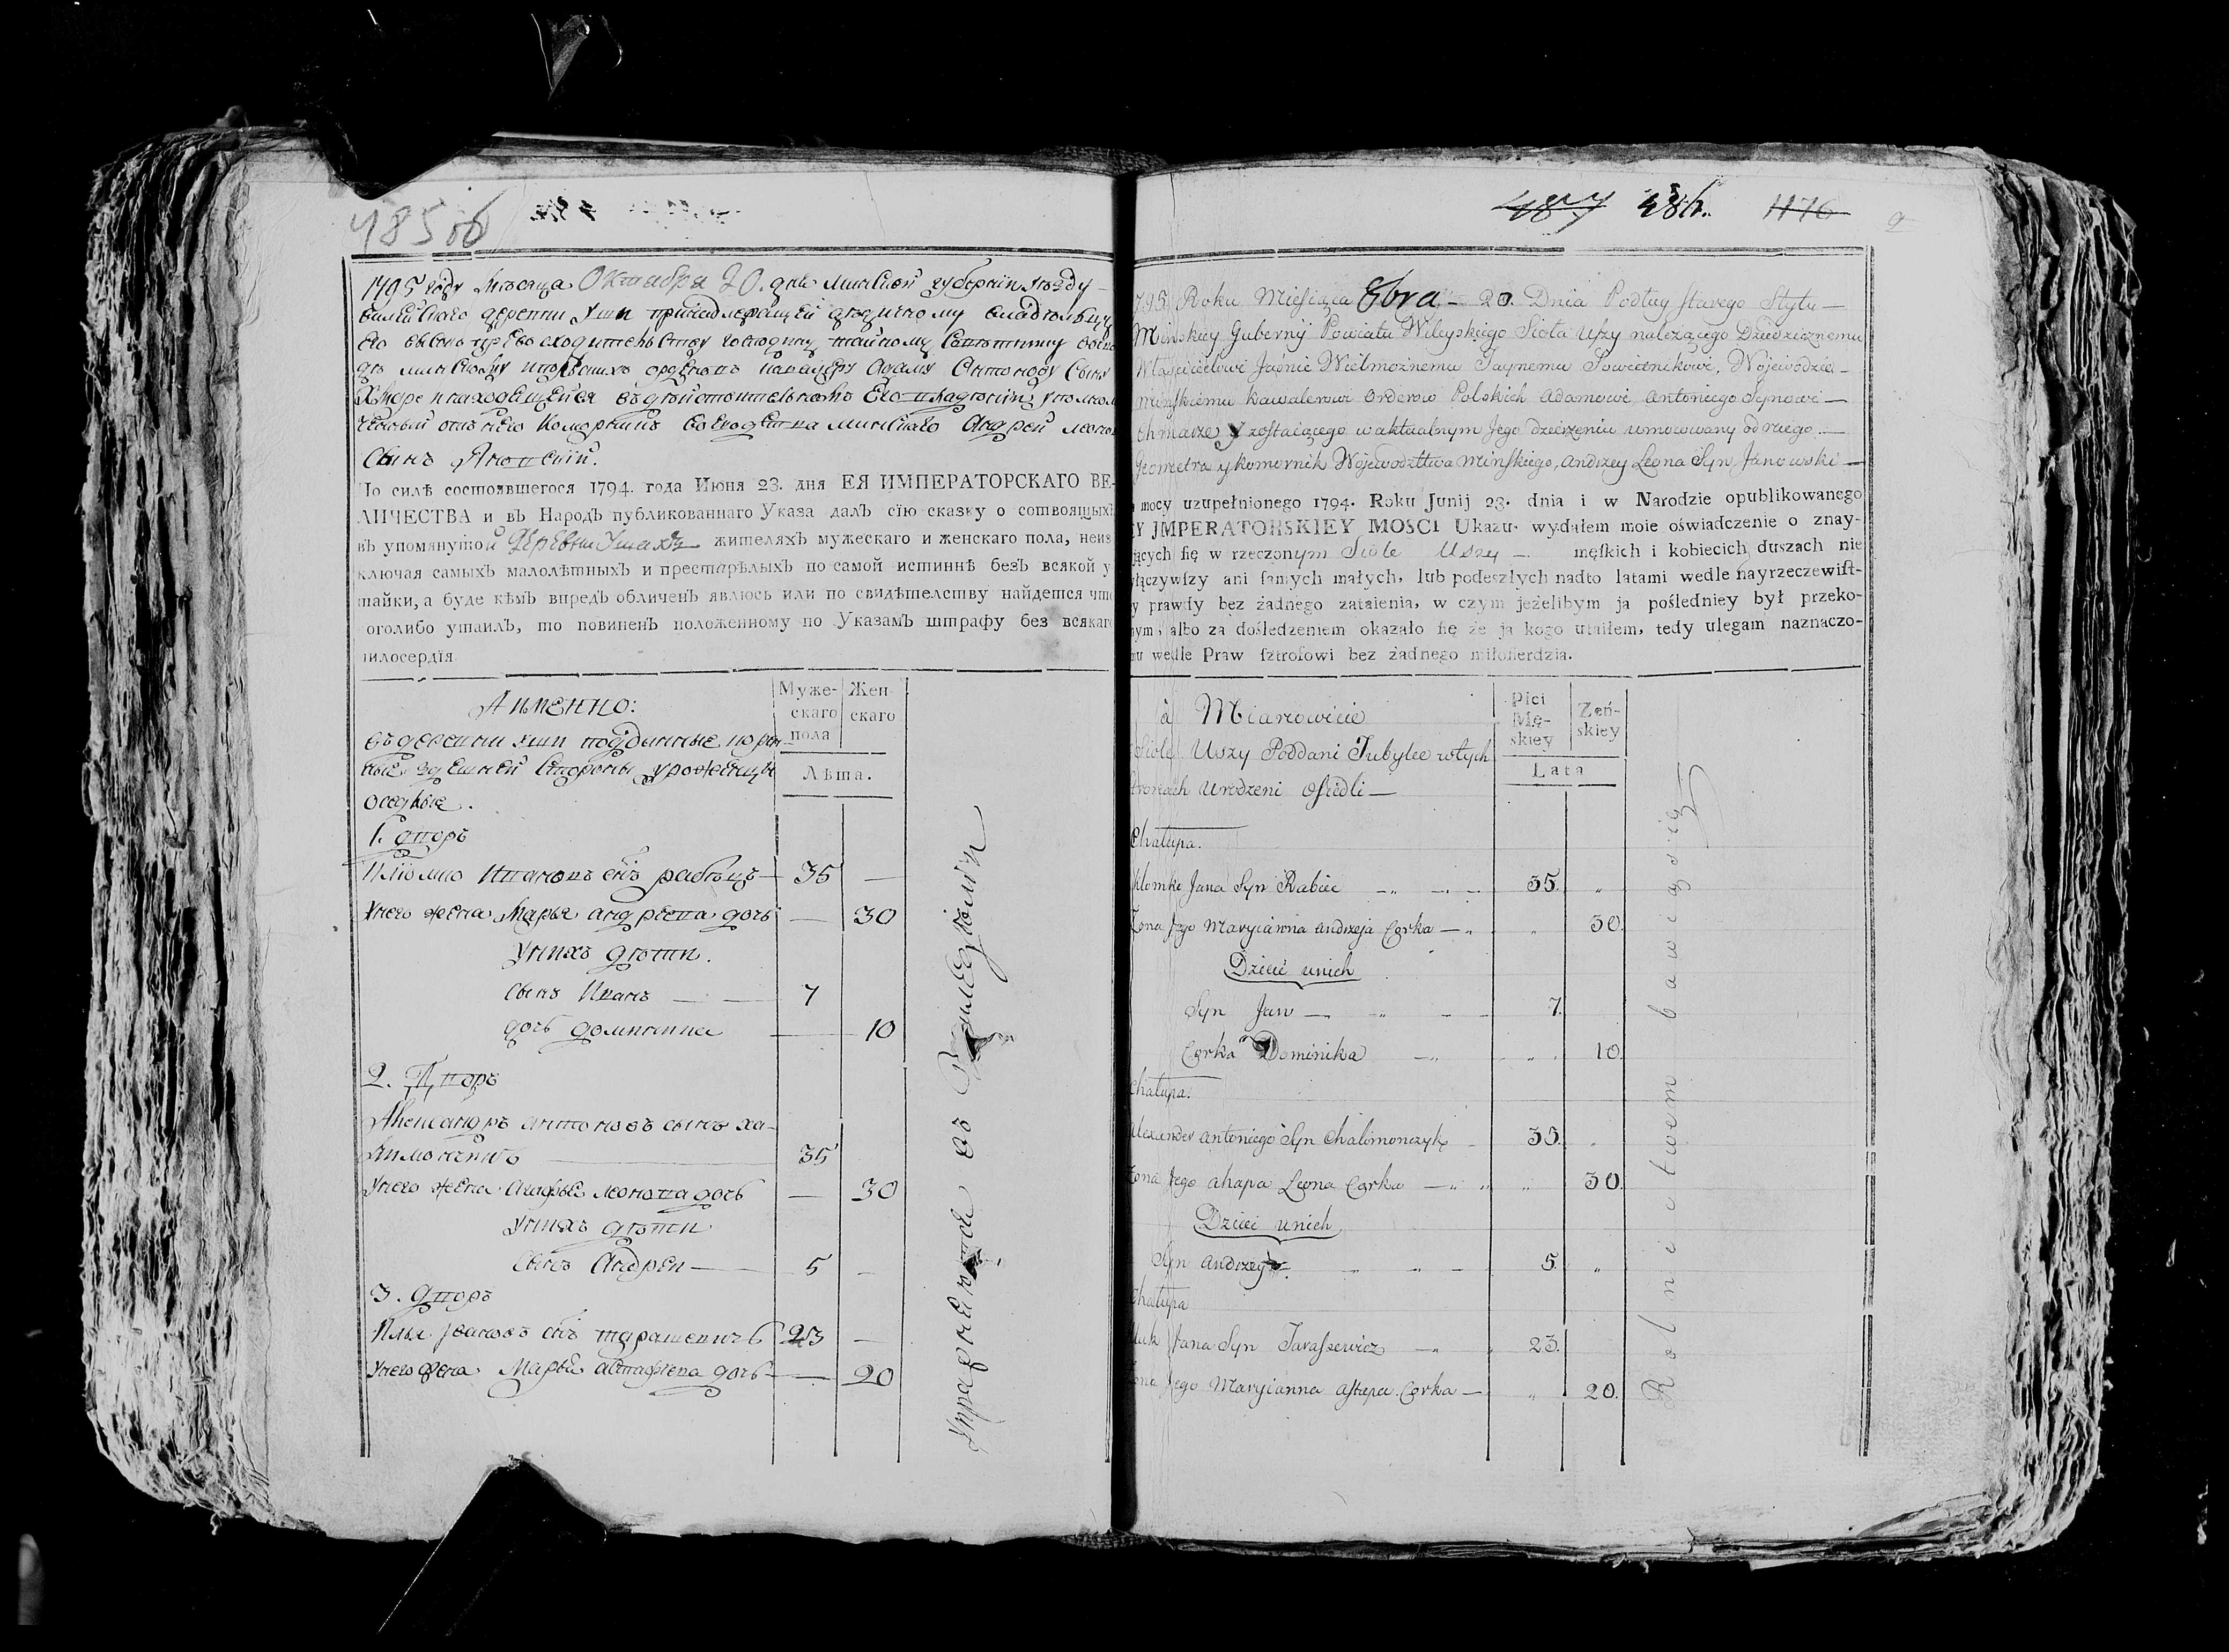 485 об
1795 году Мѣсяца Октября 20. дня Минской губернии уѣзду
Вилейскаго деревни Уши принадлежащей дѣдичному владѣльцу
его высокопревосходительству господину тайному совѣтнику воево
дѣ минскому и польскихъ орденовъ кавалеру Адаму Антонову сыну
Хмаре и находящейся въ дѣйствительномъ его владѣнии уполномо
ченный отъ него коморникъ воеводства минскаго Андрей Леоновъ
сынъ Яновский.
По силѣ состоявшегося 1794. года Июня 23. дня ЕЯ ИМПЕРАТОРСКАГО ВЕ-
ЛИЧЕСТВА и въ Народъ публикованнаго Указа далъ сїю сказку о сотвоящыхъ
въ упомянутой деревни Ушахъ жителяхъ мужескаго и женскаго пола, неис
ключая самыхъ малолѣтныхъ и престарѣлыхъ по самой истиннѣ безъ всякой у
тайки, а буде кѣмъ впредь обличенъ явлюсь или по свидѣтелству найдется что
оголибо утаилъ, то повиненъ положенному по Указамъ штрафу без всякаго
милосердїя
Аименно:
Муже-скаго пола
Жен-скаго
Лѣта.
въ деревни Уши подданные
здешней стороны уроженцы
оседлые.
1. дворъ
Ивановъ снъ рабецъ 35 —
У него жена Марья андреева дочь — 30
У нихъ дѣти.
сынъ Иванъ — 7
дочь доминика — 10
2. Дворъ
Александръ антоновъ сынъ ха-
лимончикъ 35
У него жена Агафья леонова дочь — 30
У нихъ дѣти
Сынъ Андрей — 5 —
3. дворъ
Илья Ивановъ снъ тарашевичь 23 —
У него жена Марья астафьева дочь — 20
Упражняются въ Земледѣлии
487 486. 1176
795 Roku Miesiąca 8bra – 20. Dnia Podług starego Stylu —
Minskiey Gubernij Powiatu Wileyskiego Sioła Uszy należącego Dziedzicznemu
Właścicielowi Jaśnie Wielmożnemu Taynemu Sowietnikowi, Wojewodzie –
Minskiemu Kawalerowi Orderow Polskich Adamowi Antoniego Synowi —
Chmarze y zostaiącego w aktualnym Jego dzierżeniu umocowany od niego —
Geometra y Komornik Wojewodztwa Minskiego, Andrzey Leona Syn Janowski —
mocy uzupełnionego 1794. Roku Junij 23. dnia i w Narodzie opublikowanego
EY JMPERATORSKIEY MOSCI Ukazu. wydałem moie oświadczenie o znay-
jących się w rzeczonym Siole Uszy – męskich i kobiecich duszach nie
łączywszy ani samych małych, lub podeszłych nadto latami wedle nayrzeczewist-
y prawdy bez żadnego zataienia, w czym jeżelibym ja pośledniey był przeko-
nym, albo za dośledzeniem okazało się że ja kogo utaiłem, tedy ulegam naznaczo-
mu wedle Praw sztrofowi bez żadnego miłosierdzia.
a Mianowicie
Płci Mę-skiey
Zeń-skiey
Lata
Siole Uszy Poddani Tubylce w tych
stronach urodzeni osiedli —
Chałupa.
Klomka Jana Syn Rabiec 35. „
Zona Jego Maryianna Andrzeja Corka — „ 30.
Dzieci u nich
Syn Jan — 7.
Corka Dominika — 10.
Chałupa.
Alexander Antoniego Syn Chalimonczyk 35. „
Zona Jego Ahapa Leona Corka — „ 30.
Dzieci u nich
Syn Andrzey 5. „
Chałupa
Jana Syn Tarassewicz — 23.
Zona Jego Maryianna Astapa Corka — „ 20.
Rolnictwem bawią się